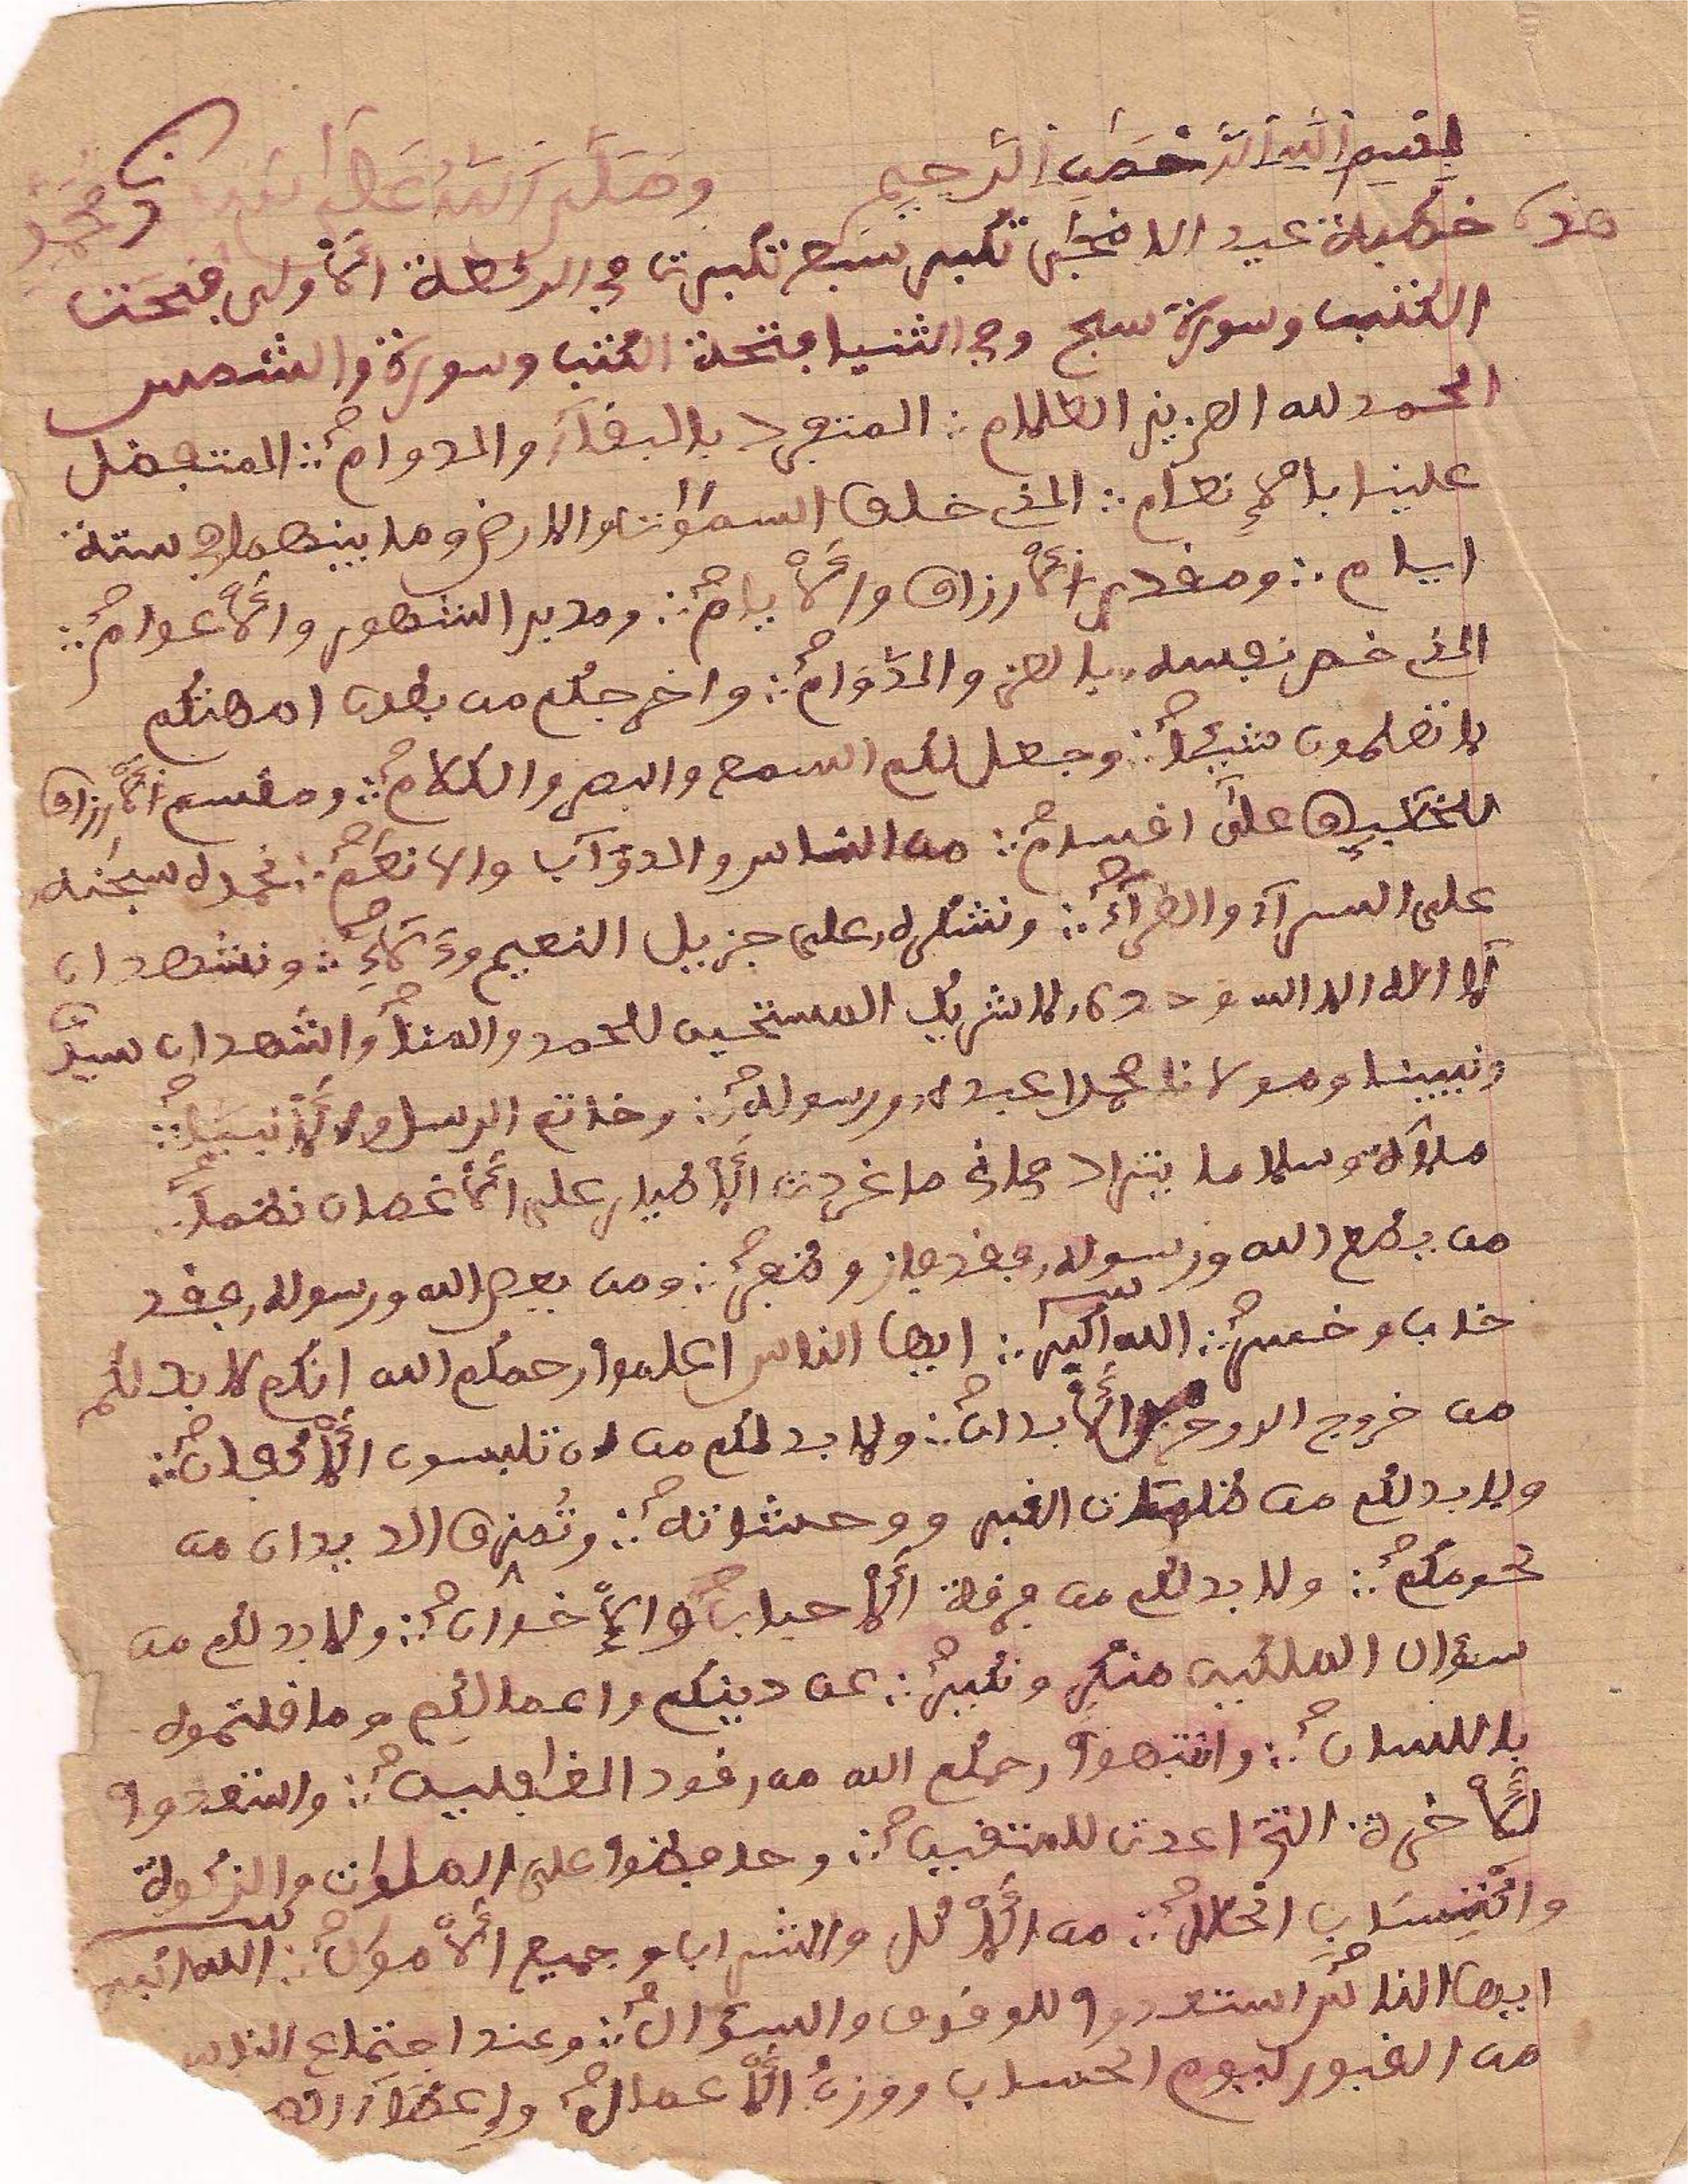 بسم الله الرحمن الرحيم وصلى الله على سيدنا محمد
هذه خطبة عيد الاضحى تكبر سبع تكبرت في الركعة الأولى بفتحت
الكتب وسورة سبح وفي الثنيا بفتحة الكتب وسورة والشمس
الحمد لله العزيز العلام ∴ المنفرد بالبقاء والدوام ∴ المتفضل
علينا بالإنعام ∴ الذي خلق السموات والارض وما بينهما في ستة
ايام ∴ ومقدر الأرزاق والأيام ∴ ومدبر الشهور والأعوام ∴
الذي خص نفسه بالعز والدوام ∴ واخرجكم من بطون امهتكم
لا تعلمون شيئا ∴ وجعل لكم السمع والبصر والكلام ∴ ومقسم الأرزاق
للخلق على اقسام ∴ من الناس والدوآب والانعم ∴ نحمده سبحنه
على السرآء والضرآء ∴ ونشكره على جزيل النعيم وءالاء ∴ ونشهد ان
لا اله الا الله وحده لا شريك المستحق للحمد والثنا والشهد ان سيدنا
ونبينا ومولانا محمدا عبده ورسوله ∴ وخاتم الرسل والأنبيا ∴
صلاة وسلاما ما غردت الأطيار على الأغصان نغما ∴
من يطع الله ورسوله فقد فاز وظفر ∴ ومن يعص الله ورسوله فقد
خاب وخسر ∴ الله اكبر ∴ ايها الناس اعلموا رحمكم الله انكم لا بد لكم
من خروج الروح من الأبدان ∴ ولا بد لكم من ان تلبسون الأكفان ∴
ولا بد لكم من ظلمات القبر ووحشاته ∴ وتمزق الابدان من
لحومكم ∴ ولا بد لكم من فرقة الأحباب والإخوان ∴ ولا بد لكم من
سؤال الملكين منكر ونكير ∴ عن دينكم واعمالكم وما قلتموه
باللسان ∴ وانتبهوا رحمكم الله من رقود الغافلين ∴ واستعدوا
للأخرة التي اعدت للمتقين ∴ وحافظوا على الصلوات والزكوة
واكتساب الحلال ∴ من الأكل والشراب وجميع الأموال ∴ الله اكبر
ايها الناس استعدوا للوقوف والسؤال ∴ وعند اجتماع الناس
من القبور ليوم الحساب ووزن الأعمال وإعطاء